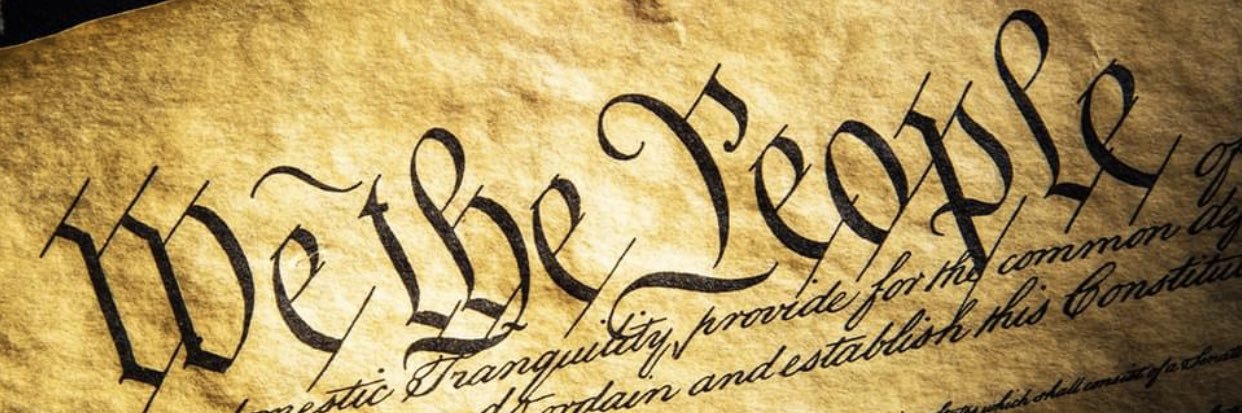 We the People
of
mestic Tranquility, provide for the common de
d ordain and establish this Constitu
which shall consist of a Senat